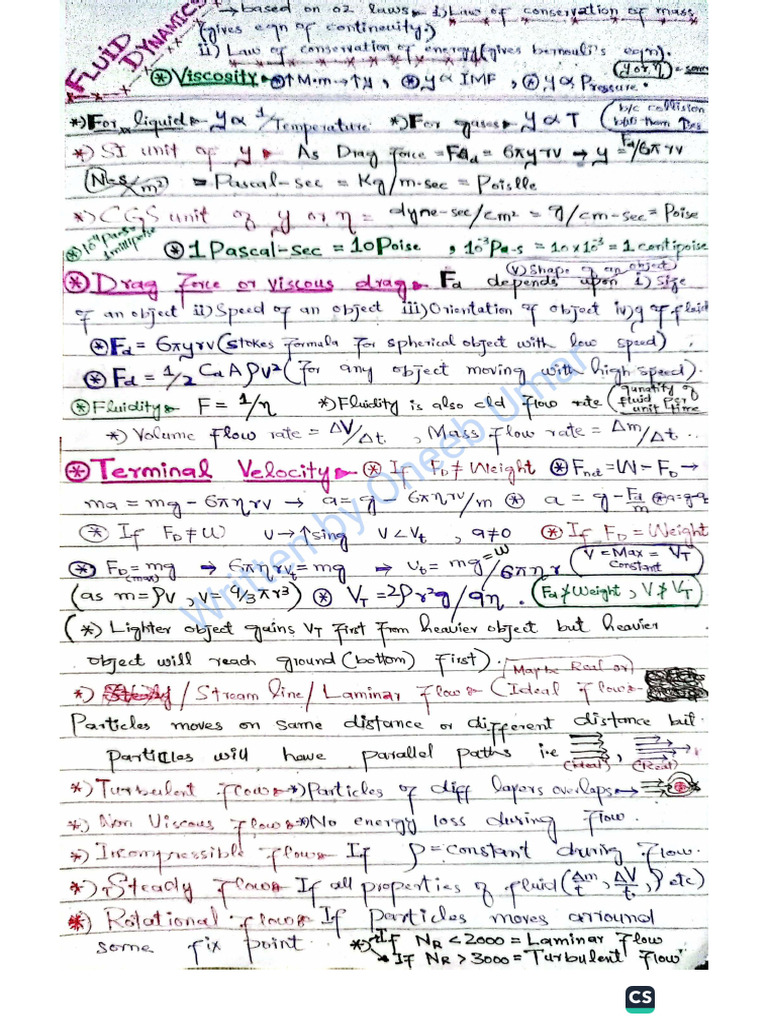 FLUID DYNAMICS
→ based on 02 laws → i) Law of conservation of mass
(gives eqn of continuity.)
ii) Law of conservation of energy (gives bernouli's eqn).
⊛ Viscosity → ⊛ ↑ M.m → ↑ y , ⊛ y ∝ IMF , ⊛ y ∝ Pressure. (y or η) = same
*) For liquid → y ∝ 1/Temperature *) For gases → y ∝ T (b/c collision b/w them ↑ses)
*) SI unit of y → As Drag Force = Fd = 6πyrv → y = Fd/6πrv
(N-s/m²) = Pascal-sec = Kg/m-sec = Poislle
*) CGS unit of y or η = dyne-sec/cm² = g/cm-sec = Poise
⊛ 1 Pascal-sec = 10 Poise , 10⁻³ Pa-s = 10 x 10⁻³ = 1 centipoise
⊛ Drag Force or viscous drag → Fd depends upon i) Size v) Shape of an object
of an object ii) Speed of an object iii) Orientation of object iv) y of fluid
⊛ Fd = 6πyrv (stokes formula for spherical object with low speed) ,
⊛ Fd = 1/2 Cd A ρ v² (For any object moving with high speed).
⊛ Fluidity → F = 1/η *) Fluidity is also cld Flow rate (qunatity of fluid per unit time
*) Volume Flow rate = ΔV/Δt , Mass Flow rate = Δm/Δt ..
⊛ Terminal Velocity → ⊛ If FD ≠ Weight ⊛ Fnet = W - FD →
ma = mg - 6πηrv → a = g - 6πηrv/m ⊛ a = g - Fd/m
⊛ If FD ≠ W v → ↑sing v < Vt , a ≠ 0 ⊛ If FD = Weight
⊛ FD = mg (max) → 6πηrvt = mg → vt = mg = W/6πηr (V = Max = VT Constant
(as m = ρv , v = 4/3πr³) ⊛ VT = 2ρr²g/9η . (Fd ≠ Weight , V ≠ VT)
(*) Lighter object gains VT First From heavier object but heavier
object will reach ground (bottom) First).
*) / Stream line / Laminar Flow → (Maybe Real or Ideal flow →
Particles moves on same distance or different distance but
particles will have parallel paths i.e (Ideal) , (Real)
*) Turbulent Flow → *) Particles of diff layers overlaps →
*) Non Viscous Flow → *) No energy loss during Flow.
*) Incompressible Flow → If ρ = constant during Flow.
*) Steady Flow → If all properties of fluid (Δm/t , ΔV/t , ρ etc)
*) Rotational Flow → If Particles moves arround
some fix point. *) → If NR < 2000 = Laminar Flow
→ If NR > 3000 = Turbulent Flow
Written by Oneeb Umar
CS